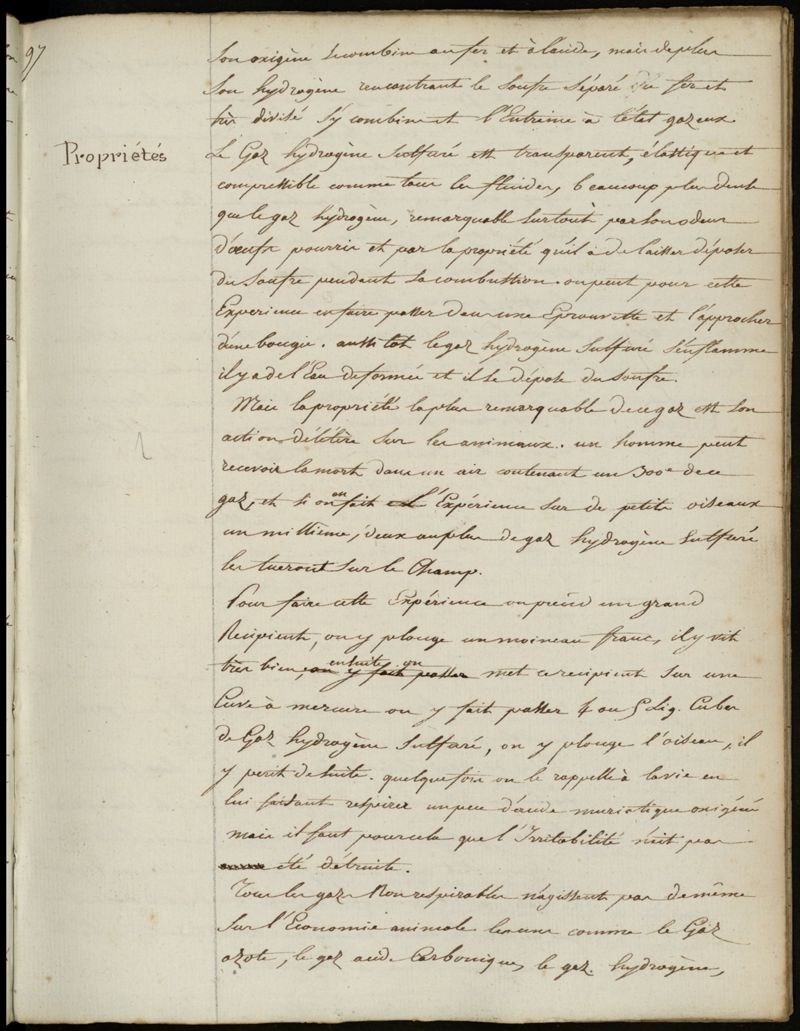 97
son oxigène se combine au fer et à l'acide, mais de plus
son hydrogène rencontrant le soufre séparé du fer et
très divisé s'y combine et l'entraine à l'état gazeux
Propriétés
Le Gaz hydrogène Sulfuré est transparent, élastique et
compressible comme tous les fluides, beaucoup plus dense
que le gaz hydrogène, remarquable surtout par son odeur
d'oeufs pourris et par la propriété qu'il a de laisser déposer
du Soufre pendant sa combustion. on peut pour cette
Experience en faire passer dans une Eprouvette et l'approcher
d'une bougie. aussi tot le gaz hydrogène Sulfuré s'enflamme
il y a de l'Eau de formée et il se dépose du soufre.
Mais la propriété la plus remarquable de ce gaz est son
action délétère sur les animaux. un homme peut
recevoir la mort dans un air contenant un 300e de ce
gaz, et si on fait l'Expérience sur de petits oiseaux
un millième, deux au plus de gaz hydrogène Sulfuré
les tueront sur le Champ.
Pour faire cette Expérience on prend un grand
Recipient, on y plonge un moineau franc, il y vit
très bien, on y fait passer ensuite on met ce recipient sur une
Cuve à mercure on y fait passer 4 ou 5 Lig. Cubes
de Gaz hydrogène Sulfuré, on y plonge l'oiseau, il
y perit de suite. quelque fois on le rappelle à la vie en
lui faisant respirer un peu d'acide muriatique oxigéné
mais il faut pour cela que l'Irritabilité n'ait pas
été détruite.
Tous les gaz Non respirables n'agissent pas de même
sur l'Economie animale les uns comme le Gaz
azote, le gaz acide Carbonique, le gaz hydrogène,